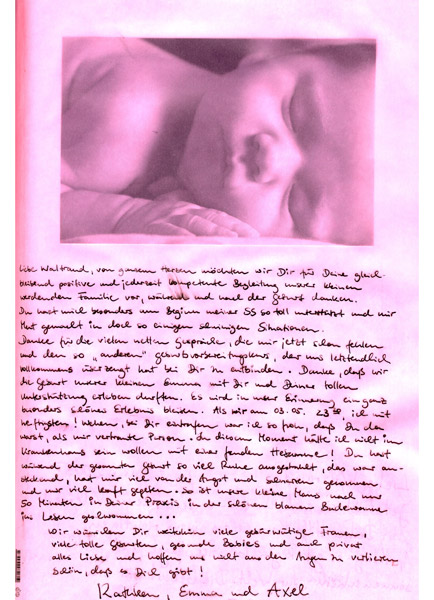 Liebe Waltraud, von ganzem Herzen möchten wir Dir für Deine gleich-
bleibend positive und jederzeit kompetente Begleitung unserer kleinen
werdenden Familie vor, während und nach der Geburt danken.
Du hast mich besonders am Beginn meiner SS so toll unterstützt und mir
Mut gemacht in doch so einigen schwierigen Situationen.
Danke für die vielen netten Gespräche, die mir jetzt schon fehlen
und den so "anderen" Geburtsvorbereitungskurs, der uns letztendlich
vollkommens überzeugt hat bei Dir zu entbinden. Danke, daß wir
die Geburt unserer kleinen Emma mit Dir und Deiner tollen
Unterstützung erleben durften. Es wird in unserer Erinnerung ein ganz
besonders schönes Erlebnis bleiben. Als wir am 03.05. 23:00, ich mit
heftigsten! Wehen, bei Dir eintrafen war ich so froh, daß Du da
warst, als mir vertraute Person. In diesem Moment hätte ich nicht im
Krankenhaus sein wollen mit einer fremden Hebamme! Du hast
während der gesamten Geburt so viel Ruhe ausgestrahlt, das war an-
steckend, hat mir viel von der Angst und Schmerzen genommen
und mir viel Kraft gegeben. So ist unsere kleine Maus nach nur
50 Minuten in Deiner Praxis in der schönen blauen Badewanne
ins Leben geschwommen...
Wir wünschen Dir weiterhin viele gebärwütige Frauen,
viele tolle Geburten, gesunde Babies und auch privat
alles Liebe und hoffen uns nicht aus den Augen zu verlieren
Schön, daß es Dich gibt!
Kathleen, Emma und Axel